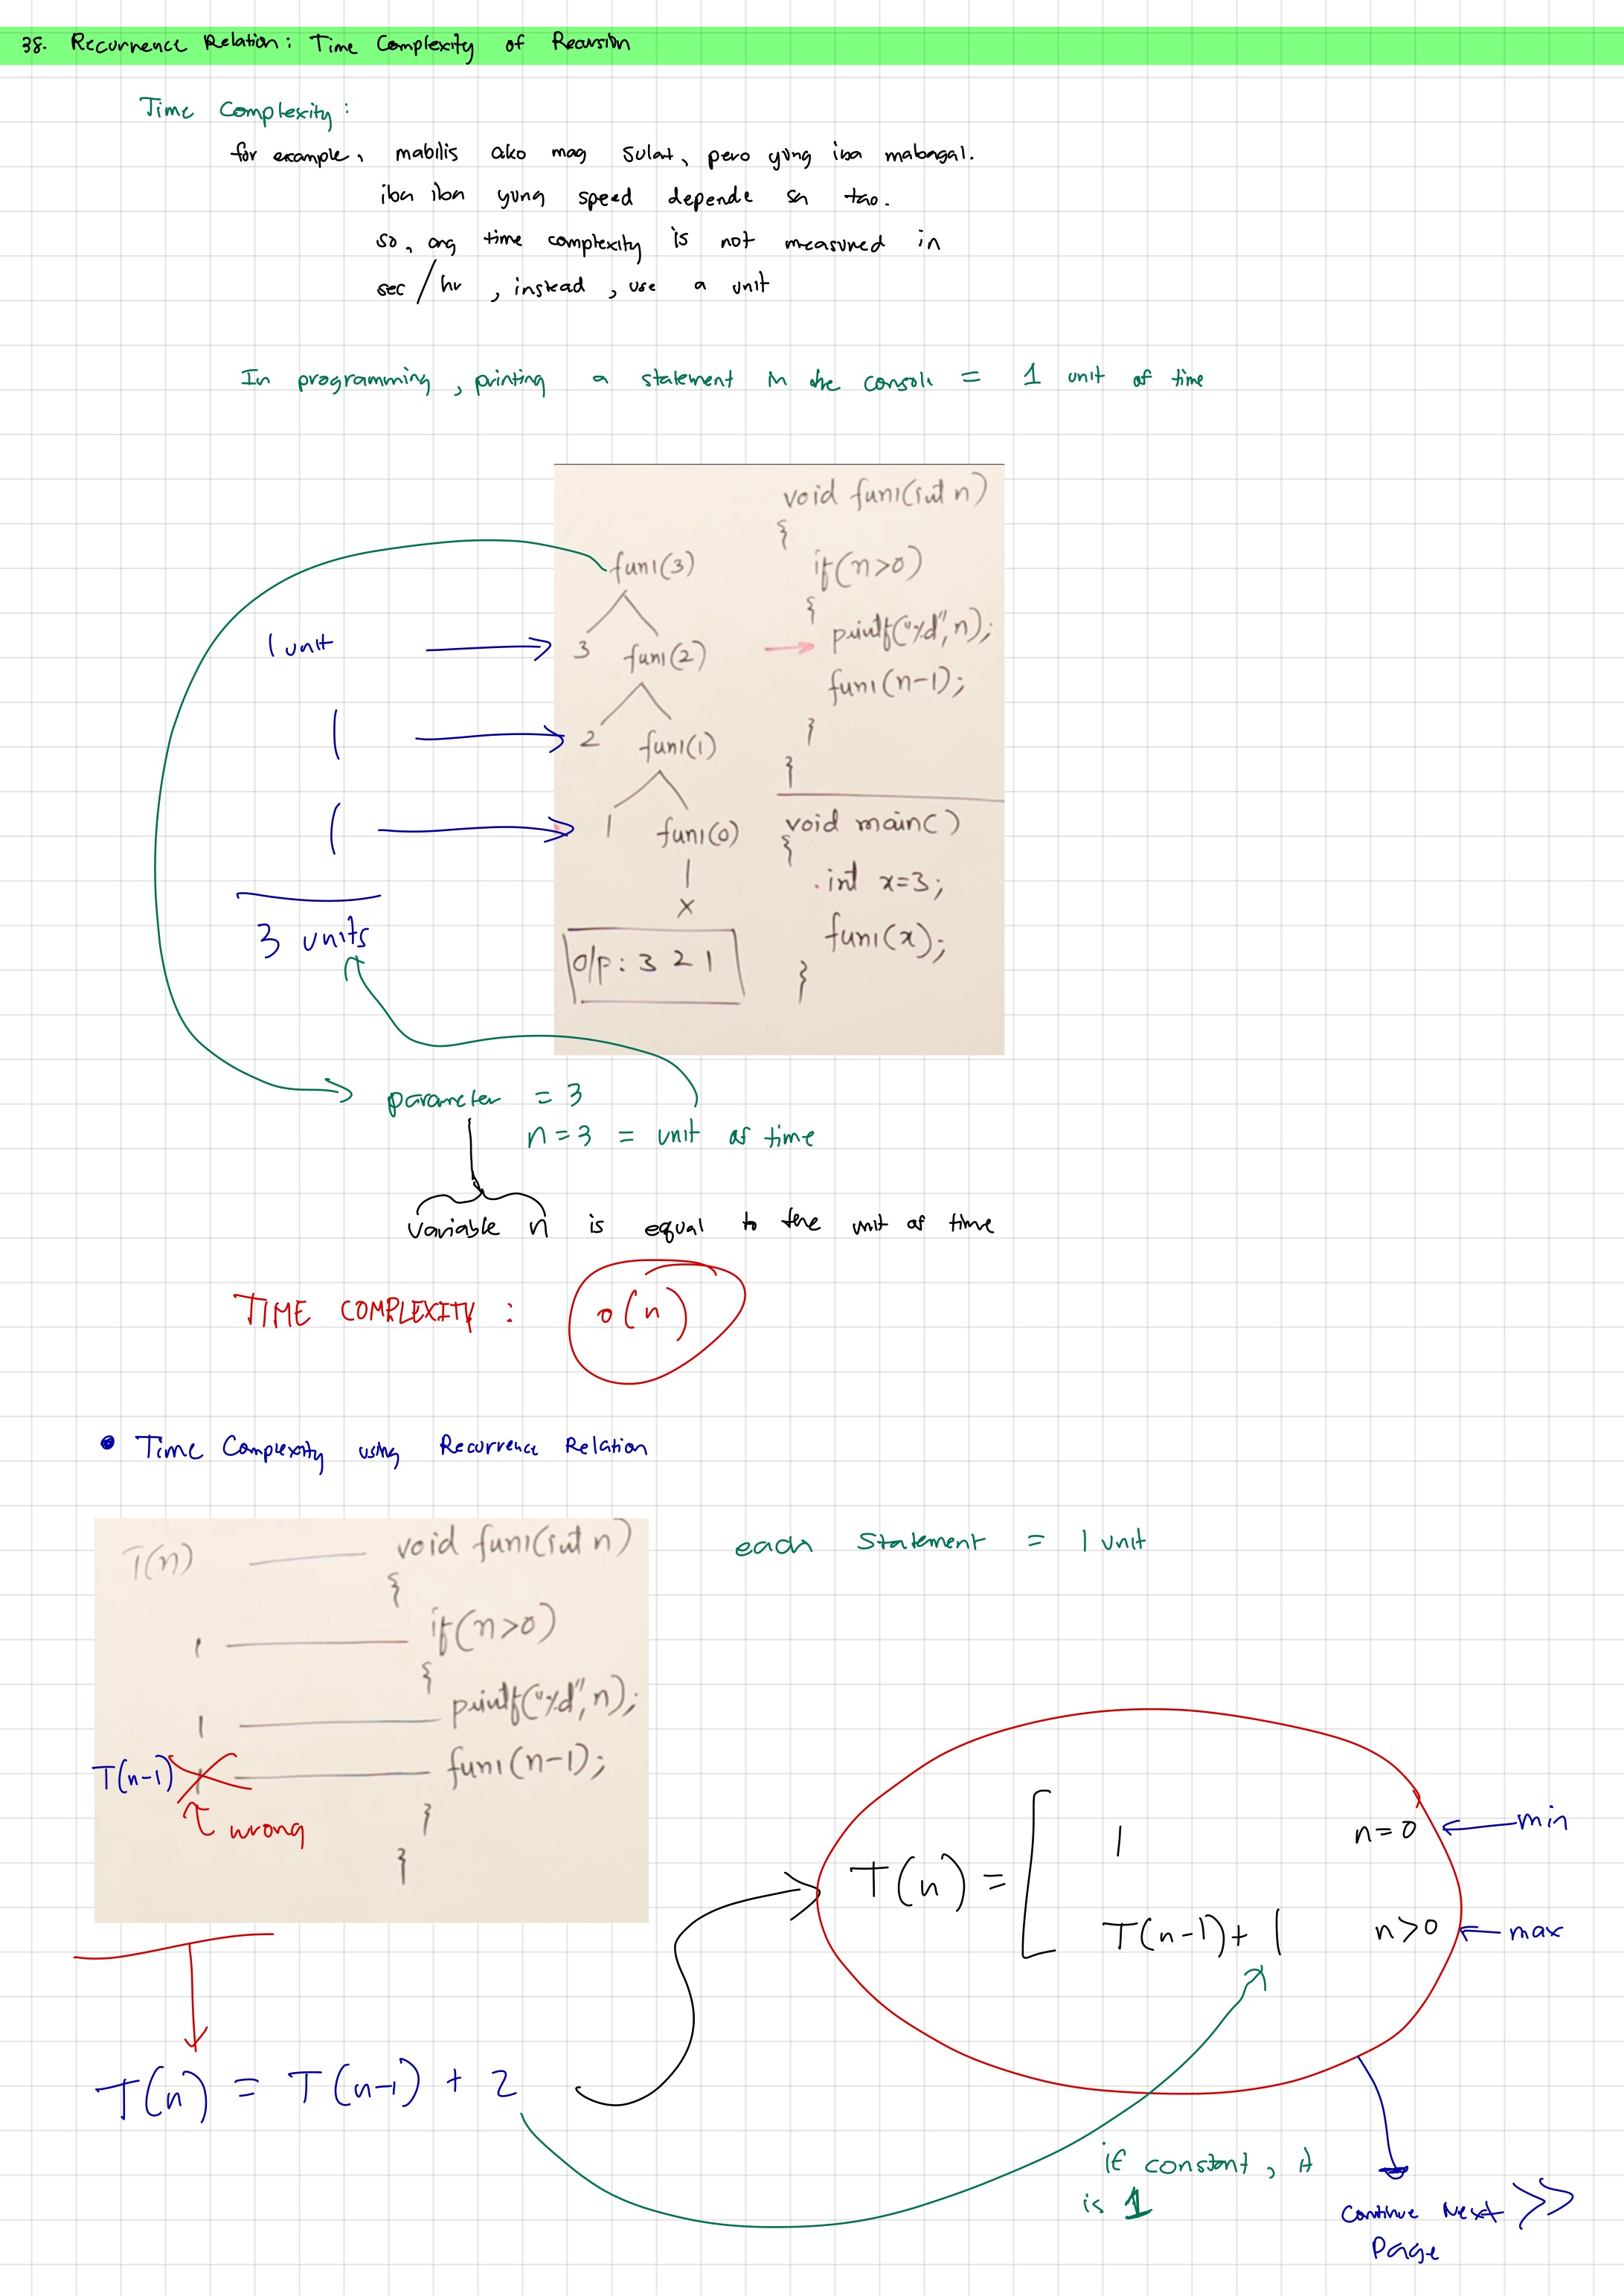 38. Recurrence Relation: Time Complexity of Recursion
Time Complexity:
for example, mabilis ako mag sulat, pero yung iba mabagal.
iba iba yung speed depende sa tao.
so, ang time complexity is not measured in
sec/hr, instead, use a unit
In programming, printing a statement in the console = 1 unit of time
void fun1(int n)
{
fun1(3)
if(n>0)
{
1 unit
3 fun1(2)
printf("%d", n);
fun1(n-1);
1
2 fun1(1)
}
}
1
1 fun1(0)
void main()
{
int x=3;
x
3 units
fun1(x);
o/p: 3 2 1
}
parameter = 3
n=3 = unit of time
variable n is equal to the unit of time
TIME COMPLEXITY: o(n)
• Time Complexity using Recurrence Relation
T(n) void fun1(int n)
{
each statement = 1 unit
1 if(n>0)
{
1 printf("%d", n);
T(n-1) 1 fun1(n-1);
wrong
}
}
T(n) = [
1 n=0 min
T(n-1)+1 n>0 max
T(n) = T(n-1) + 2
if constant, it
is 1
Continue Next >>
Page